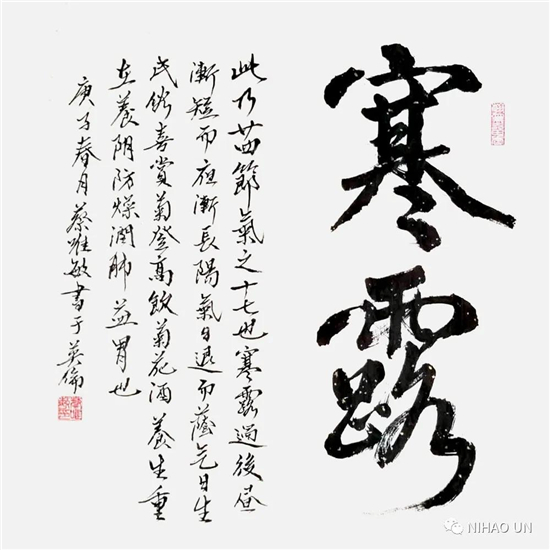 寒露
此乃廿四節氣之十七也寒露過後昼
漸短而夜漸長陽氣日退而蔭气日生
民俗喜赏菊登高飲菊花酒養生重
在養阴防燥润肺益胃也
庚子春月蔡敏書于英倫
NIHAO UN